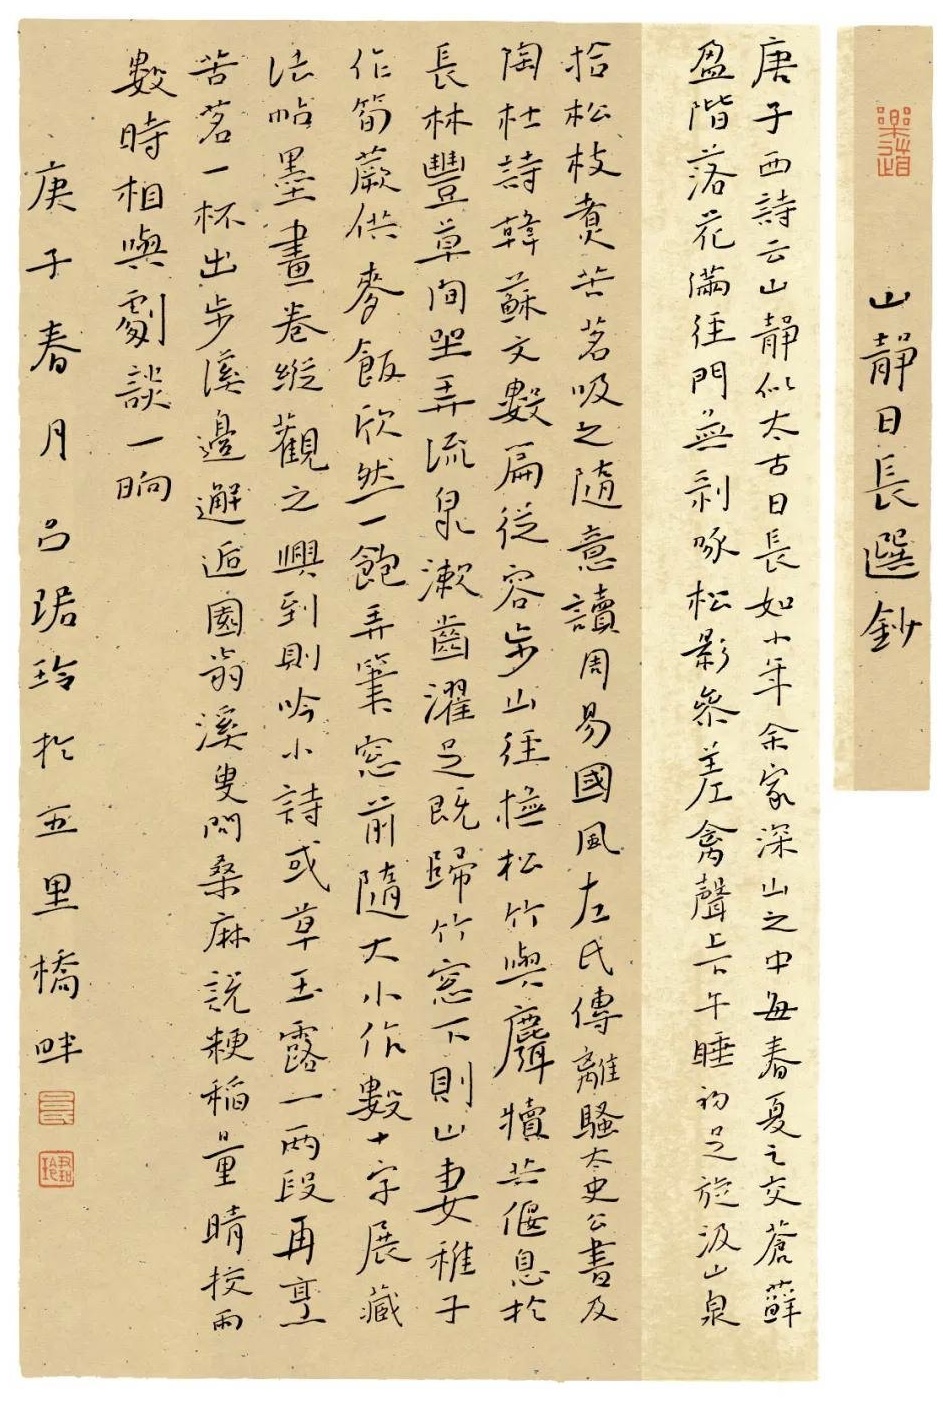 樂道
山靜日長選鈔
唐子西詩云山靜似太古日長如小年余家深山之中每春夏之交蒼蘚
盈階落花滿徑門無剝啄松影參差禽聲上下午睡初足旋汲山泉
拾松枝煑苦茗吸之隨意讀周易國風左氏傳離騷太史公書及
陶杜詩韓蘇文數扁從容步山徑撫松竹與麛犢共偃息於
長林豐草間坐弄流泉漱齒濯足既歸竹窓下則山妻稚子
作筍蕨供麥飯欣然一飽弄筆窓前隨大小作數十字展藏
法帖墨畫卷縱觀之興到則吟小詩或草玉露一兩段再烹
苦茗一杯出步溪邊邂逅園翁溪叟問桑麻說粳稻量晴挍雨
數時相與劇談一晌
庚子春月呂琚玲於五里橋畔